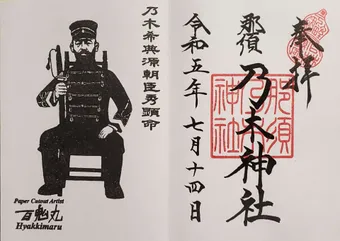 奉拝
那須
乃木神社
那須
神社
令和五年七月十四日
乃木希典源朝臣秀顕命
Paper Cutout Artist
百鬼丸
Hyakkimaru